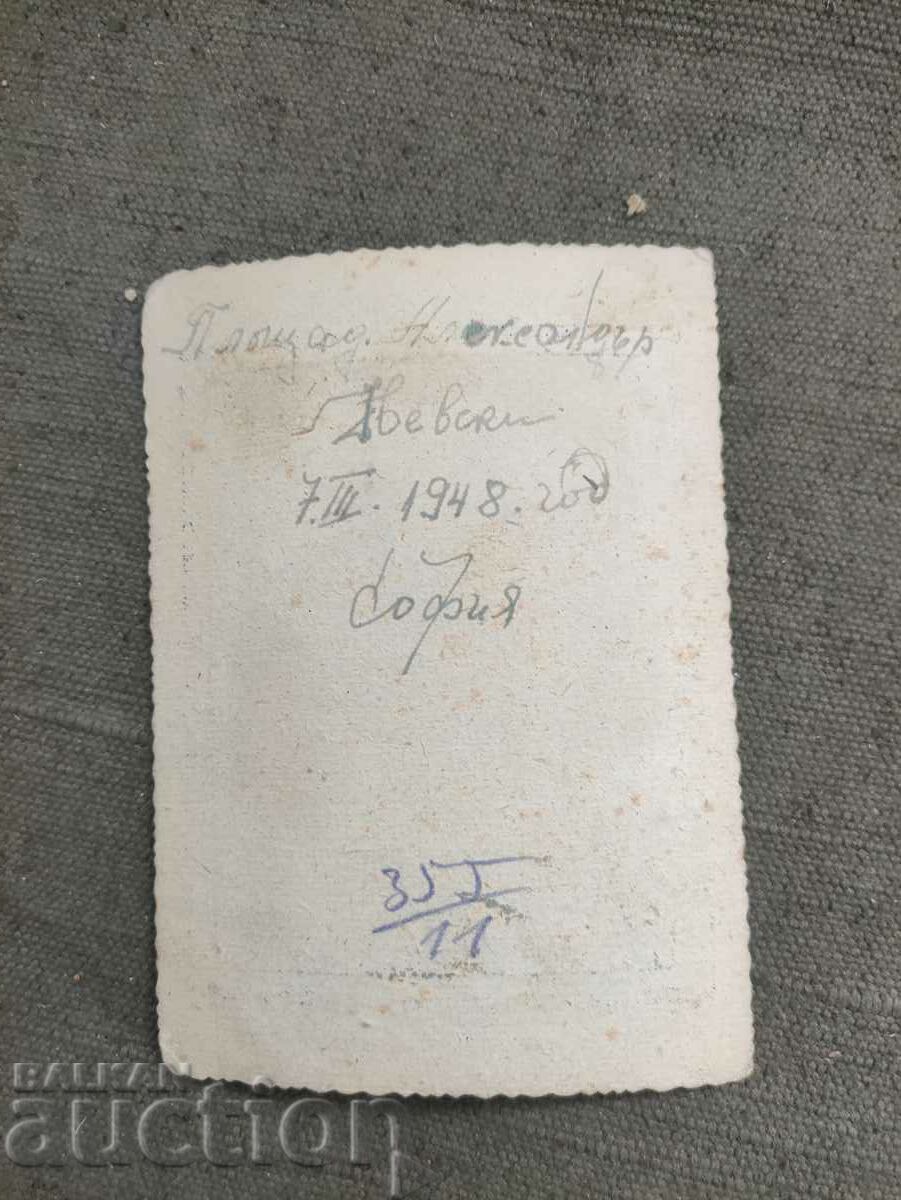 Площад. Александър
Невски
7.III. 1948. год
София
355
11
BALKAN
auction